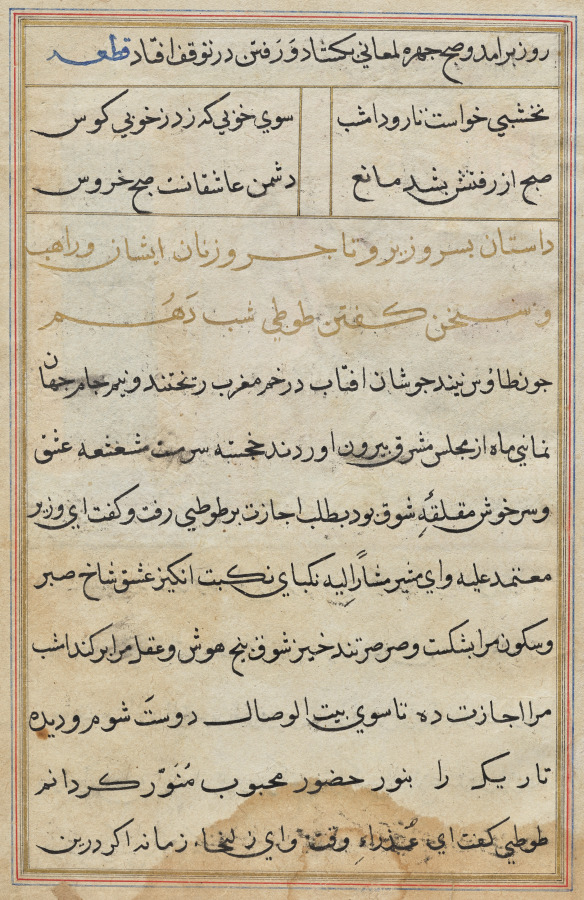 روز برامد و صبح جهره لمعانی بکشاد وَرَفتن در توقف افتاد قطعه
نخشبی خواست تا رود امشب سوی خوبی که زد ز خوبی کوس
صبح از رفتنش بشد مانع دشمن عاشقانست صبح خروس
داستان بسر وزیر و تاجر و زنان ایشان و راهب
و سخن کفتن طوطی شب دَهُم
جون طاوس جوشان افتاب در خم مغرب ریختند و نیم جام جهان
نمای ماه از مجلس مشرق بیرون اوردند خجسته سرمست مشعشعه عشق
و سرخوش شوق بود بطلب اجازت بر طوطی رفت و کفت ای وزیر
معتمد علیه و ای مشیر مشارًالیه نکبای نکبت انکیز عشق شاخ صبر
و سکون مرا بشکست و صرصر تند خیز شوق بیخ هوش و عقل مرا بر کند امشب
مرا اجازت ده تا سوی بیت الوصال دوست شوم و دیده
تاریک را بنور حضور محبوب مُنوّر کردانم
طوطی کفت ای عذراء وقت و ای زلیخاء زمانه اکر درین